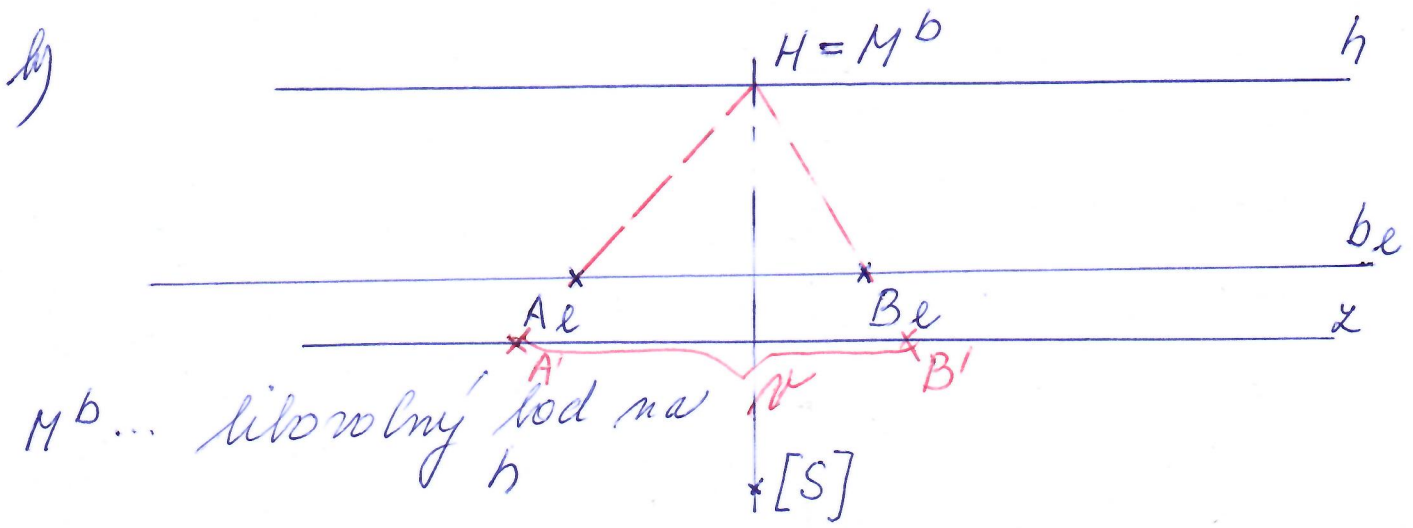 b)
H = Mᵇ
h
bₑ
Aₑ
Bₑ
z
A'
v
B'
Mᵇ... libovolný bod na
h
[S]